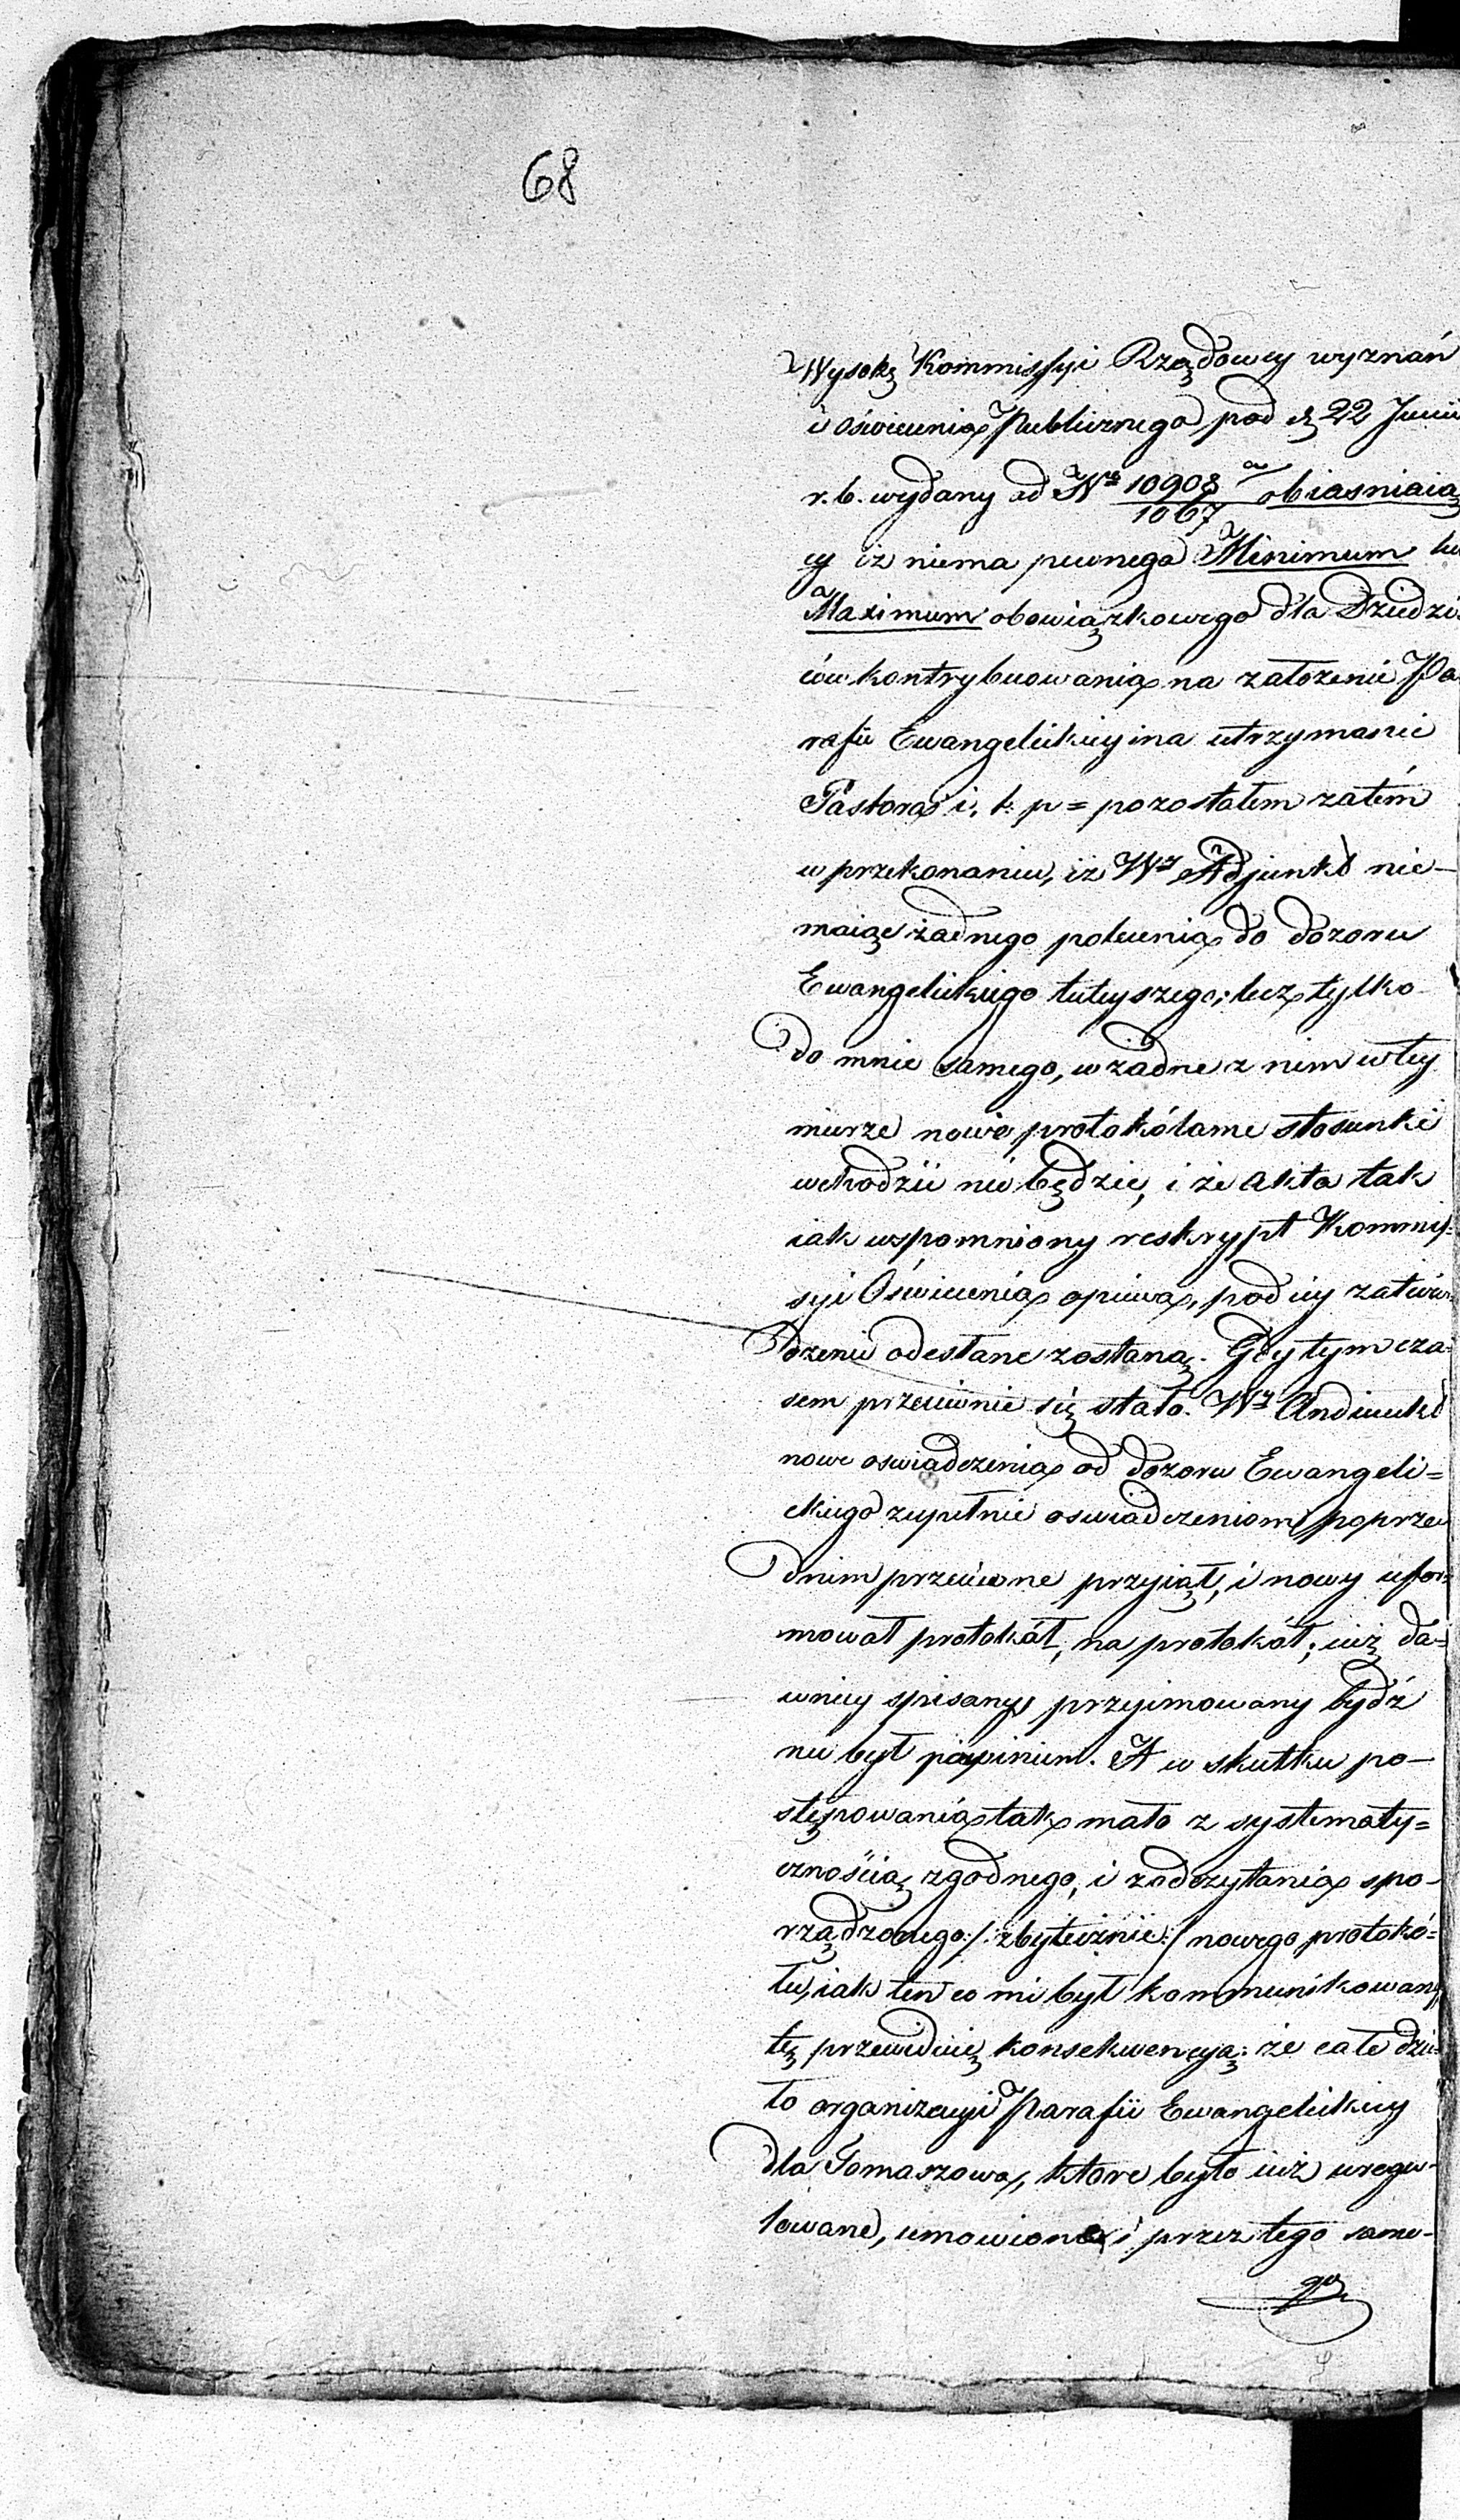 68
Wysokę Kommissyi Rządowey wyznań
i oświecenia Publicznego pod d. 22 Junii
r. b. wydany ad Nr 10908/1067 obiasniaią
cy iż niema pewnego Minimum lu
Maximum obowiązkowego dla Dziedzi=
ców kontrybuowania na założenie Pa
rafii Ewangelickiey i na utrzymanie
Pastora i, t. p = pozostałem zatém
w przekonaniu, iż Wy Adjunkt nie-
maiąc żadnego polecenia do dozoru
Ewangelickiego tuteyszego; lecz tylko
do mnie samego, w żadne z nim w tey
mierze nowe protokólarne stosunki
wchodzić nie będzie, i że akta tak
iak wspomniony reskrypt Kommis=
syi Oświecenia opiewa, pod iey zatwier=
dzenie odesłane zostaną. Gdy tym cza=
sem przeciwnie się stało. Wy Andiunkt
nowe oswiadczenia od dozoru Ewangeli=
ckiego zupełnie oswiadczeniom poprze
dnim przeciwne przyiął, i nowy ufor=
mował protokół, na protokół; iuż da=
wniey spisany przyimowany bydź
nie był powinien. A w skutku po-
stępowania tak mało z systematy=
cznością zgodnego, i zodczytania spo-
rządzonego /: zbytecznie :/ nowego protokó=
łu, iak ten co mi był kommunikowany
tę przewiduię konsekwencyą: że całe dzie=
ło organizacyi Parafii Ewangelickiey
dla Tomaszowa, które było iuż uregu-
lowane, umowione i przez tego same-
go